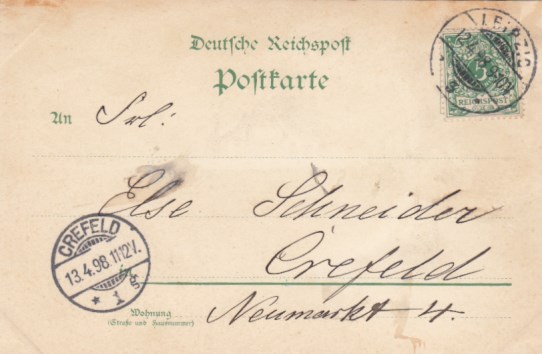 Deutsche Reichspost
Postkarte
LEIPZIG
12.4.98
5
REICHSPOST
An Frl:
Else Schneider
Crefeld
CREFELD
13.4.98 11-12V.
* 1 g.
in
Wohnung
(Straße und Hausnummer)
Neumarkt 4.